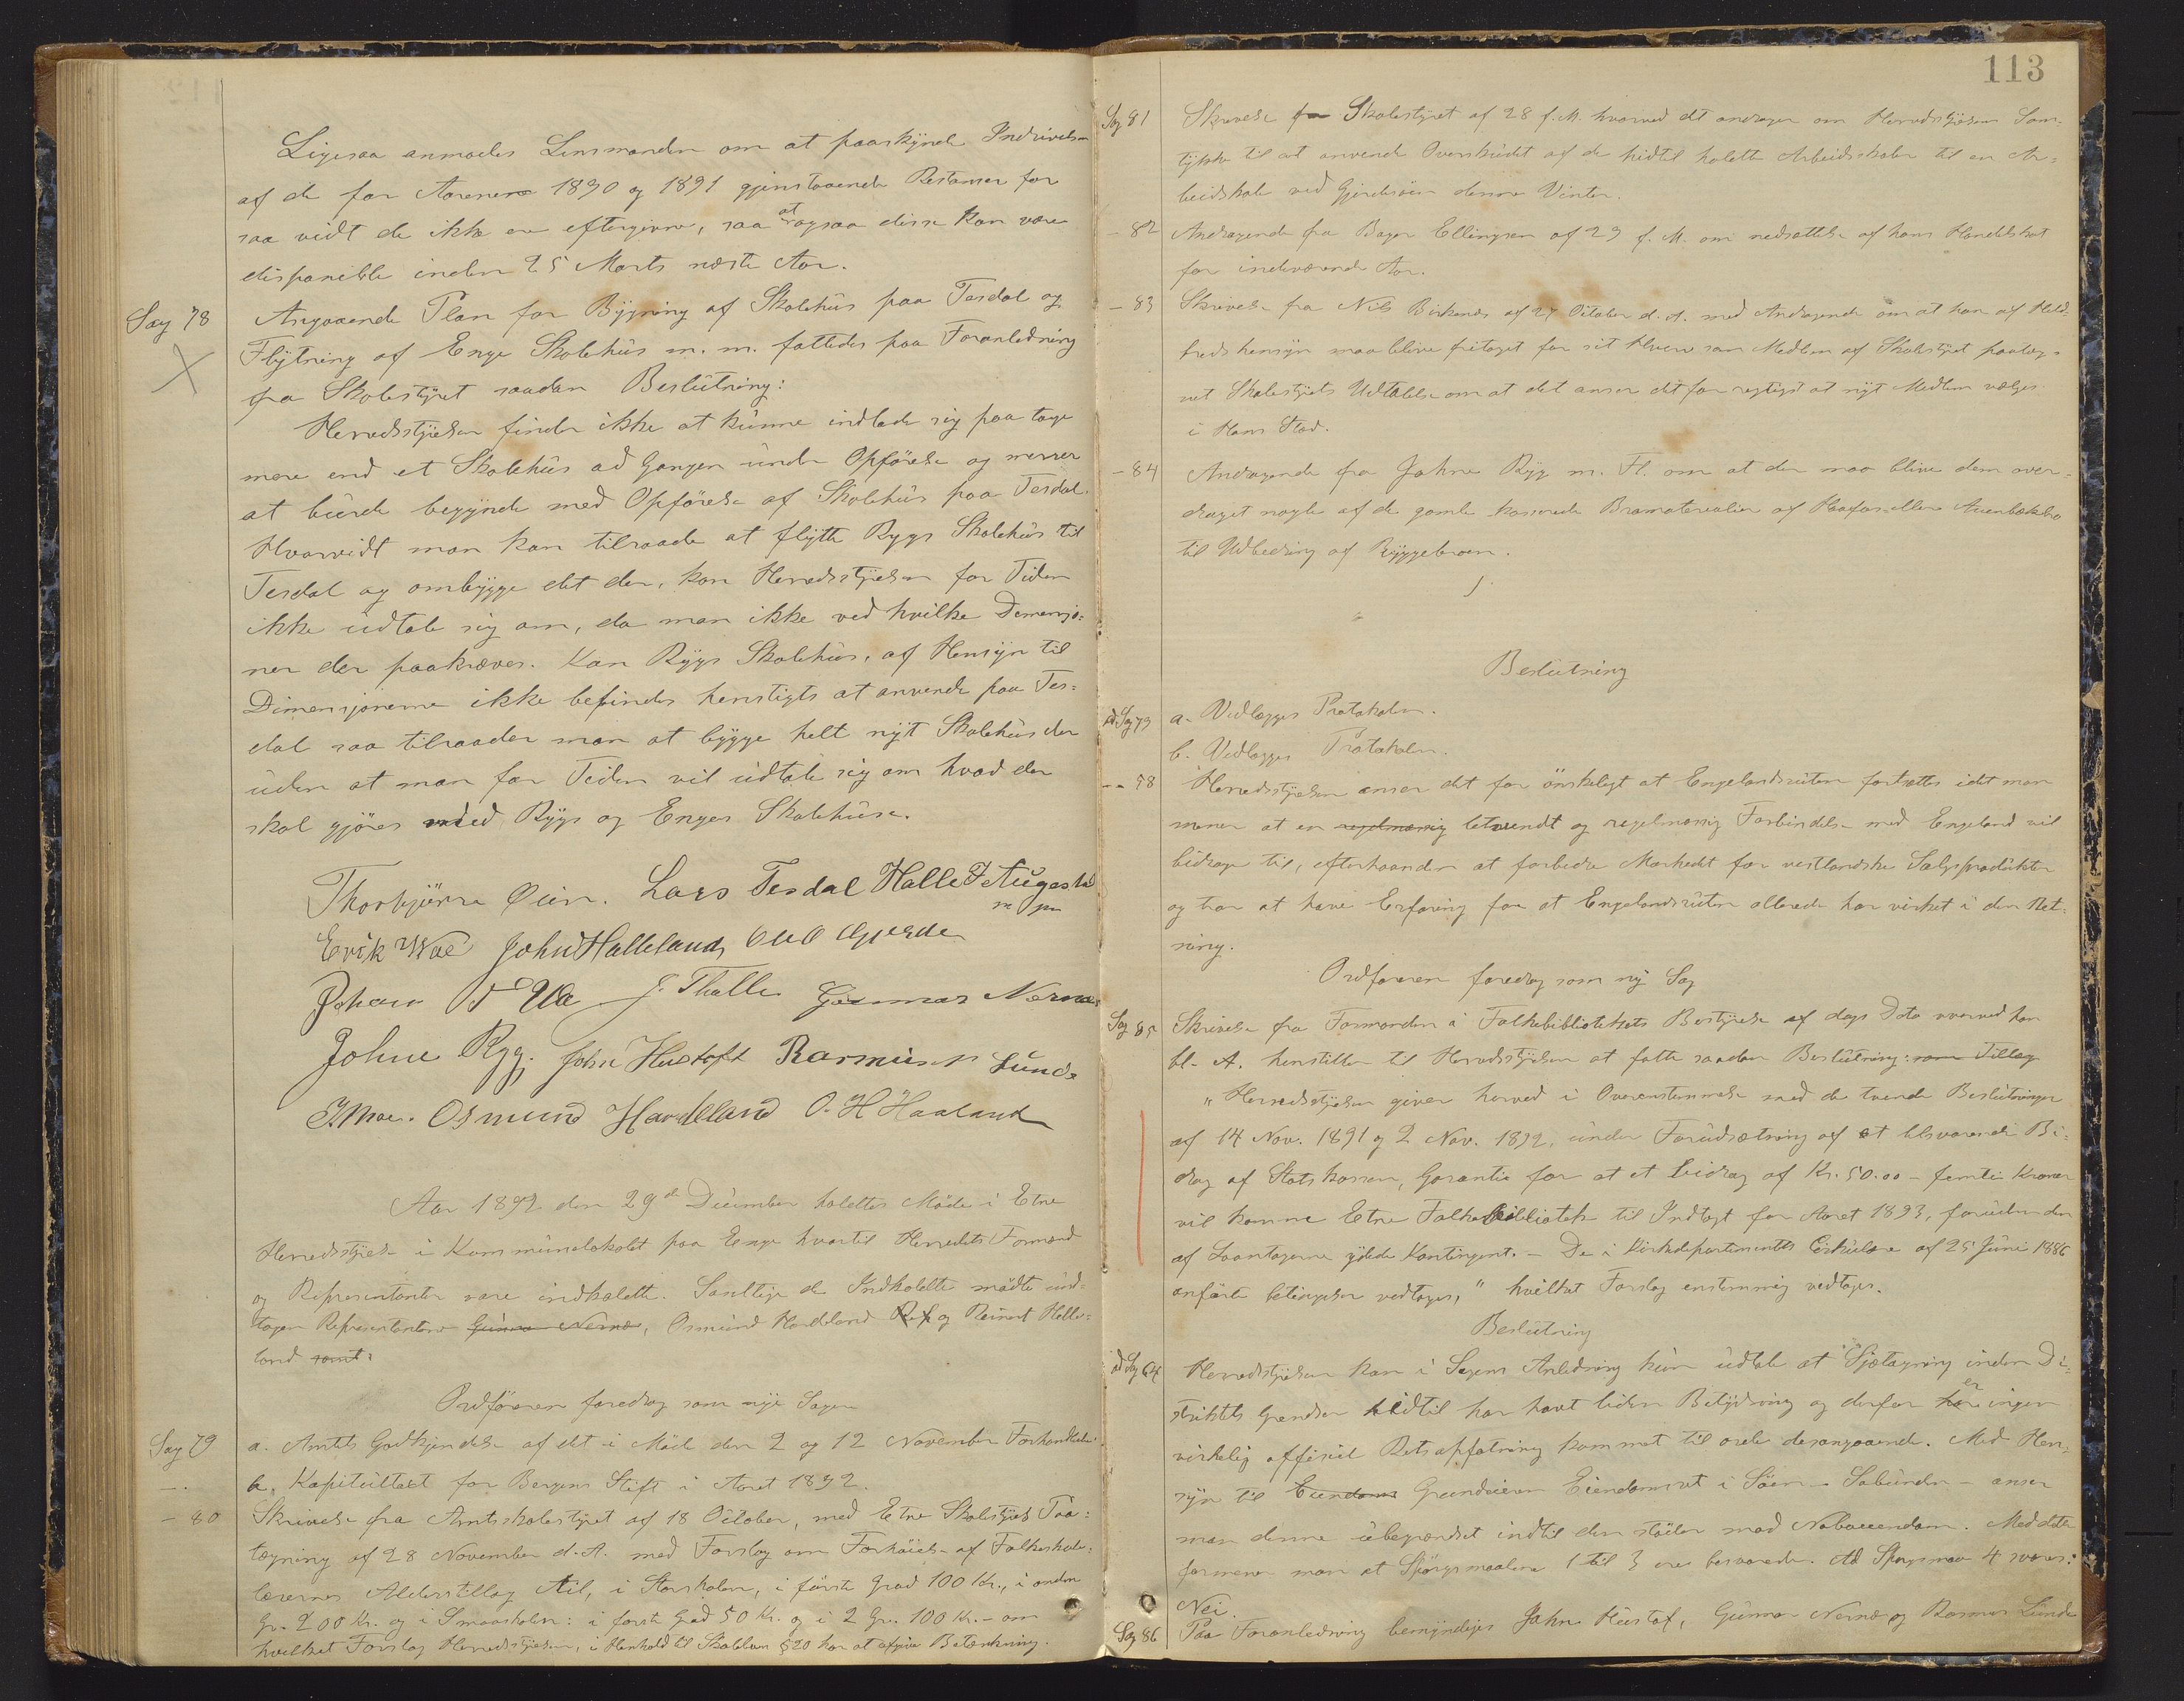 Ligesaa anmodes Lensmanden om at paaskynde Inddrivelsen
af de for Aarene 1890 og 1891 gjenstaaende Restancer for
saa vidt de ikke er eftergivne, saa at ogsaa disse kan være
disponible inden 25 Marts næste Aar.
Sag 78
Angaaende Plan for Bygning af Skolehus paa Tesdal og
Flytning af Enge Skolehus m. m. fattedes paa Foranledning
fra Skolestyret saadan Beslutning:
Herredsstyrelsen finder ikke at kunne indlade sig paa tage
mere end et Skolehus ad Gangen under Opførelse og mener
at burde begynde med Opførelse af Skolehus paa Tesdal.
Hvorvidt man kan tilraade at flytte Rygs Skolehus til
Tesdal og ombygge det der, kan Herredsstyrelsen for Tiden
ikke udtale sig om, da man ikke ved hvilke Dimensjo-
ner der paakræves. Kan Rygs Skolehus, af Hensyn til
Dimensjonerne ikke befindes hensigts at anvende paa Tes-
dal saa tilraader man at bygge helt nyt Skolehus der
uden at man for Tiden vil udtale sig om hvad der
skal gjøres med Rygs og Enges Skolehuse.
Thorbjørn Øien. Lars Tesdal Halle J Augestad
m p
Erik Moe John Halleland Ole O Gjerde
Johan Ua J. Thalle Gunnar Nernæs
Johne Ryg. John Hustoft Rasmus Lunde
J. Moe. Osmund Hardeland O. H Haaland
Aar 1892 den 29de December holdtes Møde i Etne
Herredsstyrelse i Kommunelokalet paa Enge hvortil Herredets Formænd
og Repræsentanter vare indkaldte. Samtlige de Indkaldte mødte und-
tagen Repræsentanterne Gunnar Nernæs, Osmund Hardeland og Reinert Helle-
land samt
Ordføreren foredrog som nye Sager
Sag 79
a. Amtets Godkjendelse af det i Møde den 2 og 12 November Forhandlede
b. Kapitultaxt for Bergens Stift i Aaret 1892.
- 80
Skrivelse fra Amtsskolestyret af 18 October, med Etne Skolestyres Paa-
tegning af 28 November d. A. med Forslag om Forhøielse af Folkeskole-
lærernes Alderstillæg til, i Storskolen, i første Grad 100 Kr., i anden
Gr. 200 Kr. og i Smaaskolen: i første Grad 50 Kr. og i 2 Gr. 100 Kr. - om
hvilket Forslag Herredsstyrelsen, i Henhold til Skoleloven § 20 har at afgive Betænkning.
113
Sag 81
Skrivelse fra Skolestyret af 28 f. M. hvorved det andrager om Herredsstyrelsens Sam-
tykke til at anvende Overskudet af de hidtil holdte Arbeidsskoler til en Ar-
beidsskole ved Gjerdesøen denne Vinter.
- 82
Andragende fra Bager Ellingsen af 29 f. M. om nedsættelse af hans Handelsskat
for indeværende Aar.
- 83
Skrivelse fra Nils Birkenes af 27 October d. A. med Andragende om at han af Held-
breds hensyn maa blive fritaget for sit Hverv som Medlem af Skolestyret paateg-
net Skolestyrets Udtalelse om at det anser det for rigtigst at nyt Medlem vælges
i Hans Sted.
- 84
Andragende fra Johne Ryg m. Fl. om at der maa blive dem over-
draget nogle af de gamle kasserede Bromaterialier af
til Udbedring af Ryggebroen.
Beslutning
ad Sag 79
a. Vedlægges Protokolen.
b. Vedlægges Protokolen.
- - 58
Herredsstyrelsen anser det for ønskeligt at Engelandsruten fortsættes idet man
mener at en regelmæssig letvendt og regelmæssig Forbindelse med Engeland vil
bidrage til, efterhaanden at forbedre Markedet for vestlandske Salgsprodukter
og tror at have Erfaring for at Engelandsruten allerede har virket i den Ret-
ning.
Ordføreren foredrog som ny Sag
Sag 85
Skrivelse fra Formanden i Folkebibliotekets Bestyrelse af dags Dato hvorved han
bl. A. henstiller til Herredsstyrelsen at fatte saadan Beslutning: som Tillæg
"Herredsstyrelsen giver herved i Overensstemmelse med de tvende Beslutninger
af 14 Nov. 1891 og 2 Nov. 1892, under Forudsætning af et tilsvarende Bi-
drag af Statskassen, Garantie for at et bidrag af Kr. 50.00 - femti Kroner
vil komme Etne Folkebibliotek til Indtægt for Aaret 1893, foruden den
af Laantagerne ydede Kontingent. - De i Kirkedepartementets Cirkulære af 25 Juni 1886
anførte betingelser vedtages," hvilket Forslag enstemmig vedtages.
Beslutning
ad Sag 64
Herredsstyrelsen kan i Sagens Anledning kun udtale at Sjøtægning inden Di-
striktets Grendser hidtil har havt liden Betydning og derfor er ingen
virkelig officiel Retsopfatning kommet til orde desangaaende. Med Hen-
syn til Eiendoms Grundeieren Eiendomsret i Søen - Søbunden - anser
man denne ubegrændset indtil den støder mod Naboeiendom. Med dette
formener man at Spørgsmaalene 1 til 3 ere besvarede. Ad Spørgsmaal 4 svares:
Nei.
Sag 86
Paa Foranledning bemyndiges John Hustoft, Gunnar Nernæs og Rasmus Lunde